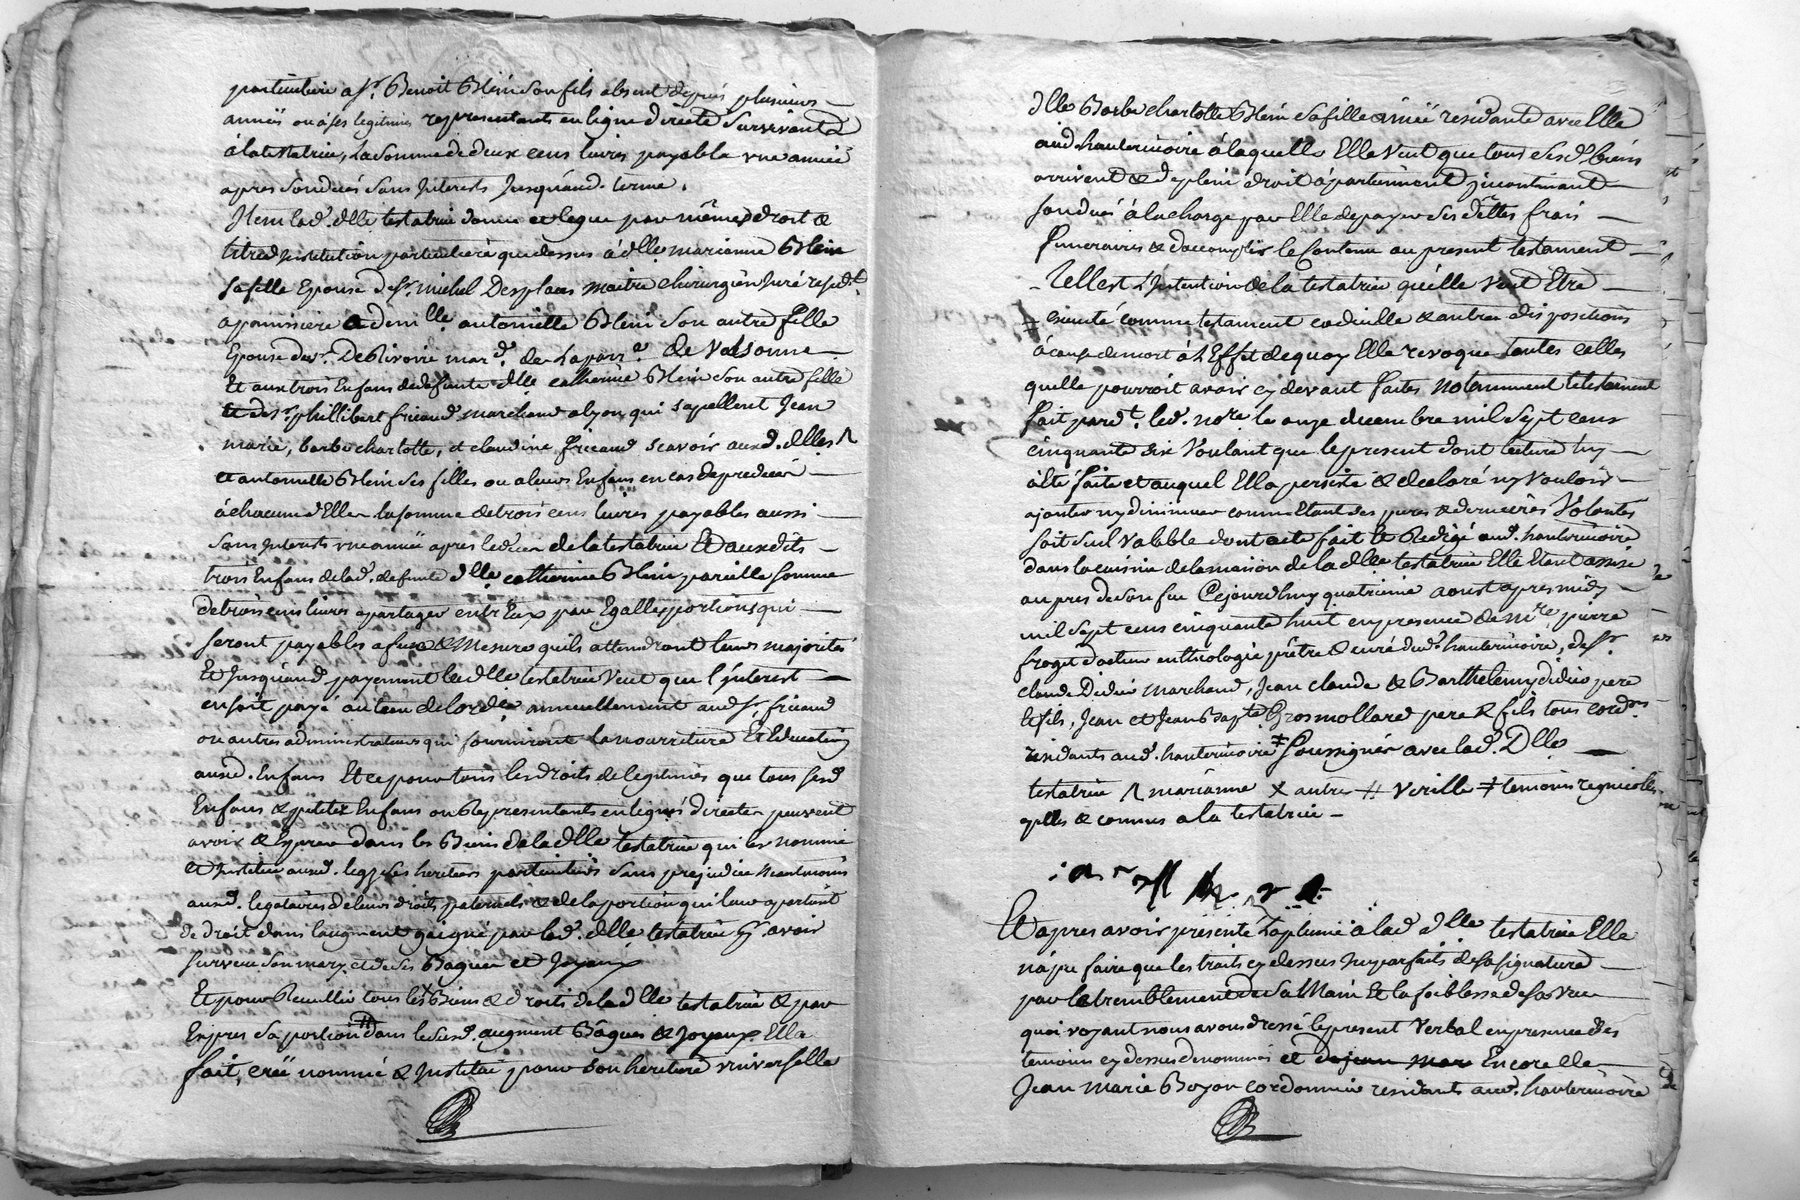 particuliere a Sr. Benoit Bleni son fils absent depuis plusieurs
années ou a ses legitimes representants en ligne directe survivants
a la testatrice, la somme de deux cens livres payable une année
apres son decés sans interests jusquaud. terme.
Item lad. dlle testatrice donne et legue par même droit &
titre d'institution particuliere que dessus a dlle marianne Bleni
sa fille Epouse de Sr. michel Desplaces maitre chirurgien juré resid.t
a pomissiere a demlle. antoinette Bleni son autre fille
Epouse de sr. De Rivoire mard. de la parr.e de Valsonne
Et aux trois Enfans de defunte dlle catherine Bleni son autre fille
et de sr. phillibert fricaud marchand a lyon qui s'apellent Jean
marie, barbe charlotte, et claudine fricaud scavoir auxd. dlles
et antoinette Bleni ses filles ou a leurs Enfans en cas de predecés
à chacune d'Elles la somme de trois cens livres payables aussi
sans interests une année apres le decés de la testatrice Et auxdits
trois Enfans de lad. defunte dlle. catherine Bleni pareille somme
de trois cens livres a partager entr'Eux par Egalles portions qui
seront payables a fur & Mesure qu'ils attendront leurs majorités
Et jusqu'aud. payement lad. dlle testatrice veut que l'interest
en soit payé au taux de l'ordce annuellement aud. Sr. fricaud
ou autres administrateurs qui fourniront la nourriture & Education
auxd. Enfans Et ce pour tous les droits de legitimes que tous sesd
Enfans & petits Enfans ou Representants en ligne directe peuvent
avoir & Esperer dans les Biens de la dlle testatrice qui les nomme
et institue auxd. legs ses heritiers particuliers sans prejudice neantmoins
auxd. legataires de leurs droits paternels & de la portion qui leur apartient
de droit dans l'augment gaigné par lad. dlle testatrice avoir
survecu son mary et de ses Bagues et Joyaux
Et pour Recueillir tous les Biens & droits de la dlle testatrice & par
Expres sa portion dans le susd. augment Bagues & Joyaux Elle
fait, créé nommé & Institué pour son heritiere universelle
dlle Barbe charlotte Bleni sa fille ainée residante avec Elle
aud. hauterivoire a laquelle Elle veut que tous sesd. biens
arrivent & de plein droit apartiennent jncontinant
son decés à la charge par Elle de payer ses dettes frais
funeraires & d'accomplir le Contenu au present testament
Telle est l'Intention de la testatrice qu'elle veut Etre
executé comme testament codicille & autres dispositions
à cause de mort à l'Effet de quoy Elle revoque toutes celles
quelle pourroit avoir cy devant faites notamment le testament
fait pard.t led. nore. le onze decembre mil sept cens
cinquante six voulant que le present dont lecture luy
a Eté faite et auquel Ella persiste & declaré n'y vouloir
ajouter ny diminuer comme Etant ses pures & dernieres Volontés
soit seul valable dont acte fait & Redigé aud. hauterivoire
dans la cuisine de la maison de la dlle testatrice Elle Etant assise
au pres de son feu Cejourdhuy quatrieme aoust apres midy
mil sept cens cinquante huit en presence de mre pierre
froget docteur en theologie prêtre & curé dud. hauterivoire, de Sr.
claude Didier marchand, Jean claude & Barthelemy didier pere
& fils, Jean et Jean Bapte Grosmollard pere & fils tous cordrs
residants aud. hauterivoire ‡ soussignés avec lad. Dlle
testatrice /\ marianne X autres # Verille ‡ temoins regnicoles
& connus a la testatrice
Et apres avoir presenté la plume a lad dlle testatrice Elle
n'a pu faire que les traits cy dessus imparfaits de sa signature
par le tremblement de sa Main Et la foiblesse de sa vue
quoi voyant nous avons dressé le present Verbal en presence des
temoins cy dessus denommés et de jean mar Encore de
Jean Marie Boyer cordonnier residants aud. hauterivoire